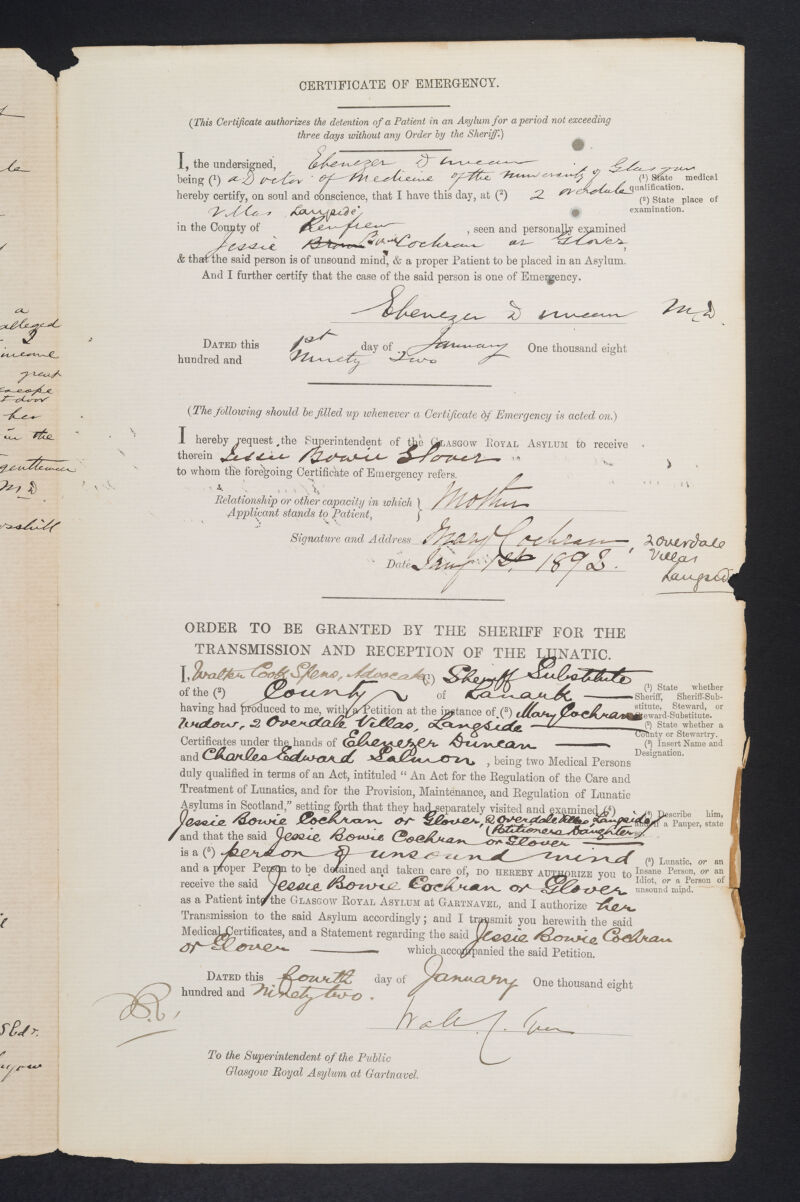 alleged
2
income
great
escape
t door
her
in the
gentleman
M.D.
CERTIFICATE OF EMERGENCY.
(This Certificate authorizes the detention of a Patient in an Asylum for a period not exceeding
three days without any Order by the Sheriff.)
I, the undersigned, Ebenezer Duncan
being (1) a Doctor of Medicine of the University of Glasgow
hereby certify, on soul and conscience, that I have this day, at (2) 2 Overdale
Villas Langside
in the County of Renfrew, seen and personally examined
Jessie Bowie Cochran or Glover,
& that the said person is of unsound mind, & a proper Patient to be placed in an Asylum.
And I further certify that the case of the said person is one of Emergency.
(1) State medical
qualification.
(2) State place of
examination.
Ebenezer Duncan M.D.
DATED this 1st day of January One thousand eight
hundred and Ninety Two
(The following should be filled up whenever a Certificate of Emergency is acted on.)
I hereby request the Superintendent of the GLASGOW ROYAL ASYLUM to receive
therein Jessie Bowie Glover
to whom the foregoing Certificate of Emergency refers.
Relationship or other capacity in which
Applicant stands to Patient, } Mother
Signature and Address Mary Cochran, 2 Overdale
Villas
Langside
Date Jany 1st, 1892.
ORDER TO BE GRANTED BY THE SHERIFF FOR THE
TRANSMISSION AND RECEPTION OF THE LUNATIC.
I, Walter Cook Spens, Advocate (1) Sheriff Substitute
of the (2) County of Lanark
having had produced to me, with a Petition at the instance of (3) Mary Cochran
Widow, 2 Overdale Villas, Langside
Certificates under the hands of Ebenezer Duncan
and Charles Edward Salmon, being two Medical Persons
duly qualified in terms of an Act, intituled "An Act for the Regulation of the Care and
Treatment of Lunatics, and for the Provision, Maintenance, and Regulation of Lunatic
Asylums in Scotland," setting forth that they had separately visited and examined (4)
Jessie Bowie Cochran or Glover, 2 Overdale Villas Langside
(Petitioners Daughter)
and that the said Jessie Bowie Cochran or Glover
is a (5) person of unsound mind
and a proper Person to be detained and taken care of, DO HEREBY AUTHORIZE you to
receive the said Jessie Bowie Cochran or Glover
as a Patient into the GLASGOW ROYAL ASYLUM AT GARTNAVEL, and I authorize her
Transmission to the said Asylum accordingly; and I transmit you herewith the said
Medical Certificates, and a Statement regarding the said Jessie Bowie Cochran
or Glover which accompanied the said Petition.
(1) State whether
Sheriff, Sheriff-Sub-
stitute, Steward, or
Steward-Substitute.
(2) State whether a
County or Stewartry.
(3) Insert Name and
Designation.
(4) Describe him,
and if a Pauper, state
(5) Lunatic, or an
Insane Person, or an
Idiot, or a Person of
unsound mind.
DATED this fourth day of January One thousand eight
hundred and Ninety two.
To the Superintendent of the Public
Glasgow Royal Asylum at Gartnavel.